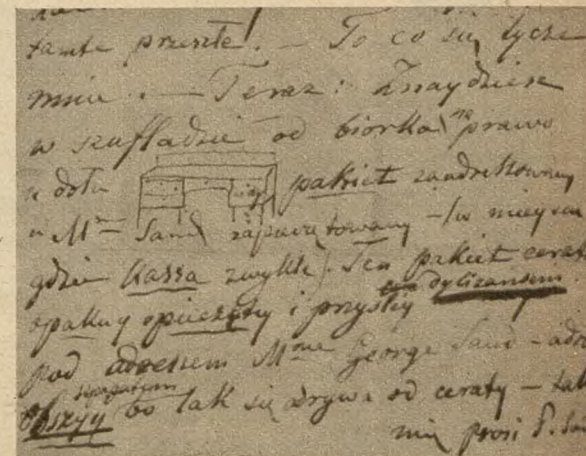 tamte przeszłe! — To co się tycze
mnie. — Teraz: Znaydziesz
w szufladzie od biorka na prawo
u dołu pakiet zaadresowany
a Mme Sand zapieczętowany — (w mieyscu
gdzie kassa zwykle). Ten pakiet ceratą
opakuy opieczętuy i przyslij dyliżansem
pod adresem Mme George Sand —
Obszyy bo tak się drywa od ceraty —
mię prosi P.